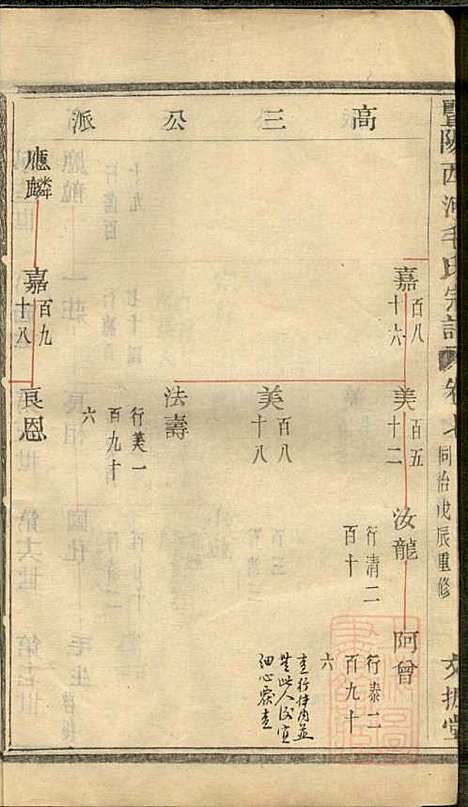 豐陽西河毛氏宗譜 卷七 同治戊辰重修 文振堂
高三公派
嘉百八十六
美百五十二
汝龍 行清二百十
阿曾 行泰二百九十六
查行傳內並
無此人後宜
細心察查
美百八十八
法壽 行美一百九十六
應麟
嘉百九十八
良恩